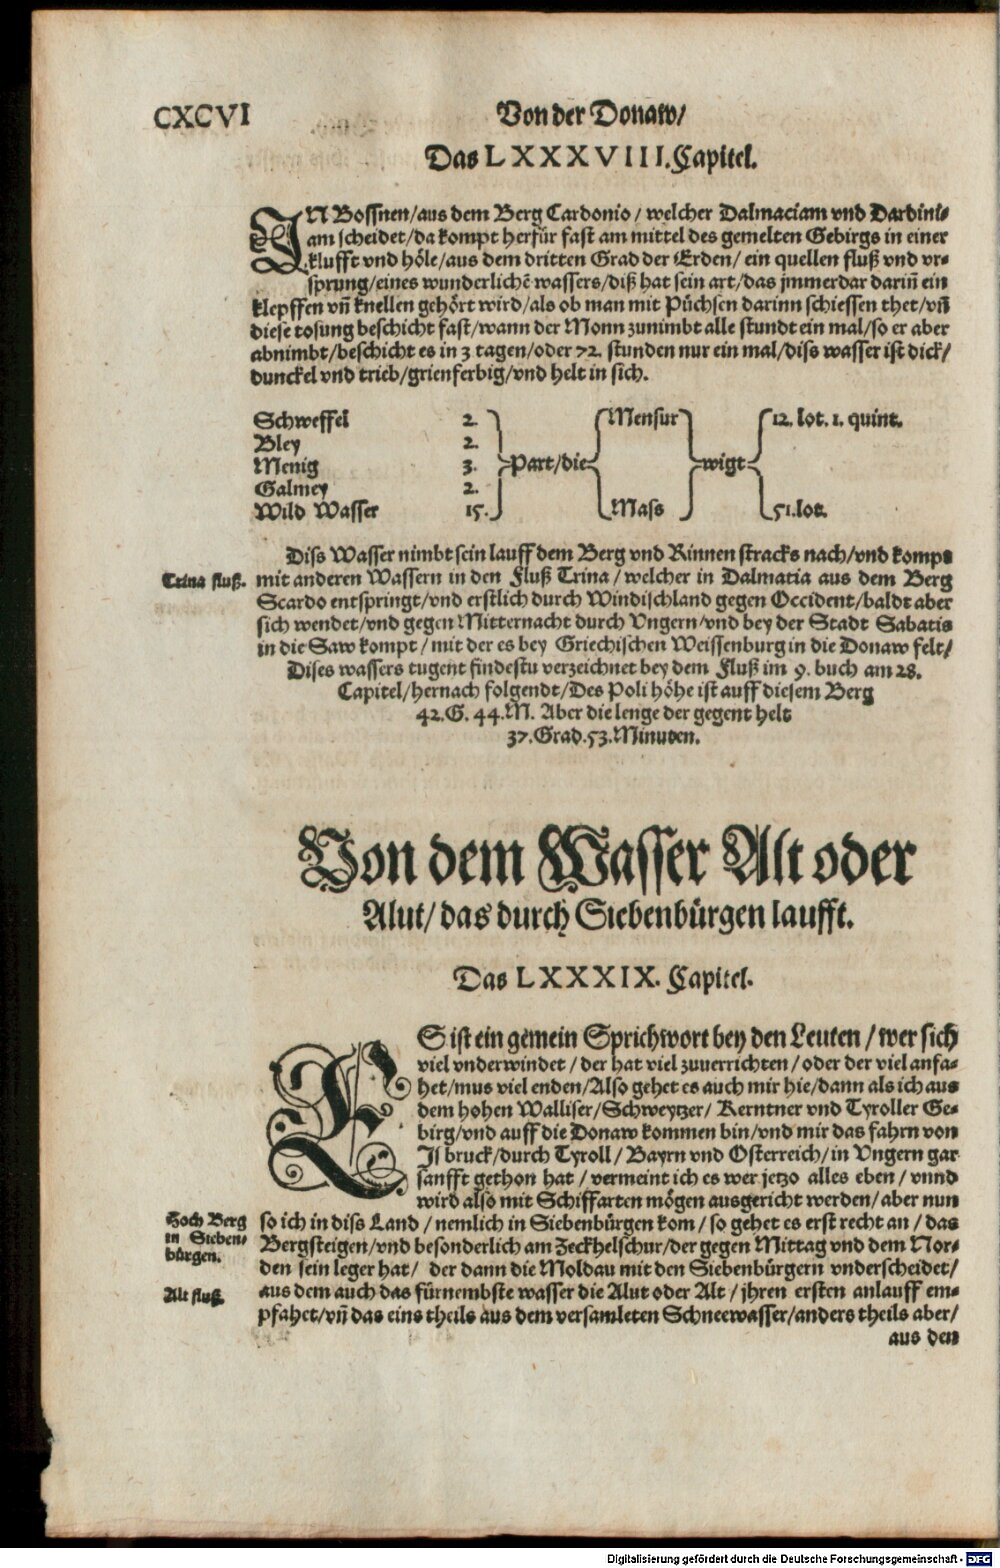 CXCVI
Von der Donaw/
Das LXXXVIII. Capitel.
IN Bossnen/aus dem Berg Cardonio/ welcher Dalmaciam vnd Dardini-
am scheidet/da kompt herfür fast am mittel des gemelten Gebirgs in einer
klufft vnd höle/aus dem dritten Grad der Erden/ ein quellen fluß vnd vr-
sprung/eines wunderlichẽ wassers/diß hat sein art/das jmmerdar dariñ ein
klepffen vñ knellen gehört wird/als ob man mit Püchsen darinn schiessen thet/vñ
diese tosung beschicht fast/wann der Monn zunimbt alle stundt ein mal/so er aber
abnimbt/beschicht es in 3 tagen/oder 72. stunden nur ein mal/diss wasser ist dick/
dunckel vnd trieb/grienferbig/vnd helt in sich.
Schweffel 2.
Bley 2.
Menig 3.
Galmey 2.
Wild Wasser 15.
Part/die
Mensur
Mass
wigt
12. lot. 1. quint.
51.lot.
Diss Wasser nimbt sein lauff dem Berg vnd Rinnen stracks nach/vnd kompt
Trina fluß.
mit anderen Wassern in den Fluß Trina/ welcher in Dalmatia aus dem Berg
Scardo entspringt/vnd erstlich durch Windischland gegen Occident/baldt aber
sich wendet/vnd gegen Mitternacht durch Vngern/vnd bey der Stadt Sabatis
in die Saw kompt/ mit der es bey Griechischen Weissenburg in die Donaw felt/
Dises wassers tugent findestu verzeichnet bey dem Fluß im 9. buch am 28.
Capitel/hernach folgendt/Des Poli höhe ist auff diesem Berg
42.G. 44.M. Aber die lenge der gegent helt
37.Grad.53.Minuten.
Von dem Wasser Alt oder
Alut/das durch Siebenbürgen laufft.
Das LXXXIX. Capitel.
ES ist ein gemein Sprichwort bey den Leuten/ wer sich
viel vnderwindet/ der hat viel zuuerrichten/ oder der viel anfa-
het/mus viel enden/Also gehet es auch mir hie/dann als ich aus
dem hohen Walliser/Schweytzer/ Kerntner vnd Tyroller Ge-
birg/vnd auff die Donaw kommen bin/vnd mir das fahrn von
Jsbruck/durch Tyroll/ Bayrn vnd Osterreich/in Vngern gar
sanfft gethon hat/ vermeint ich es wer jetzo alles eben/ vnnd
wird also mit Schiffarten mögen ausgericht werden/aber nun
Hoch Berg
in Sieben-
bürgen.
so ich in diss Land/ nemlich in Siebenbürgen kom/ so gehet es erst recht an/ das
Bergsteigen/vnd besonderlich am Zeckhelschur/der gegen Mittag vnd dem Nor-
den sein leger hat/ der dann die Moldau mit den Siebenbürgern vnderscheidet/
Alt fluß.
aus dem auch das fürnembste wasser die Alut oder Alt/ jhren ersten anlauff em-
pfahet/vñ das eins theils aus dem versamleten Schneewasser/anders theils aber/
aus den
Digitalisierung gefördert durch die Deutsche Forschungsgemeinschaft - DFG